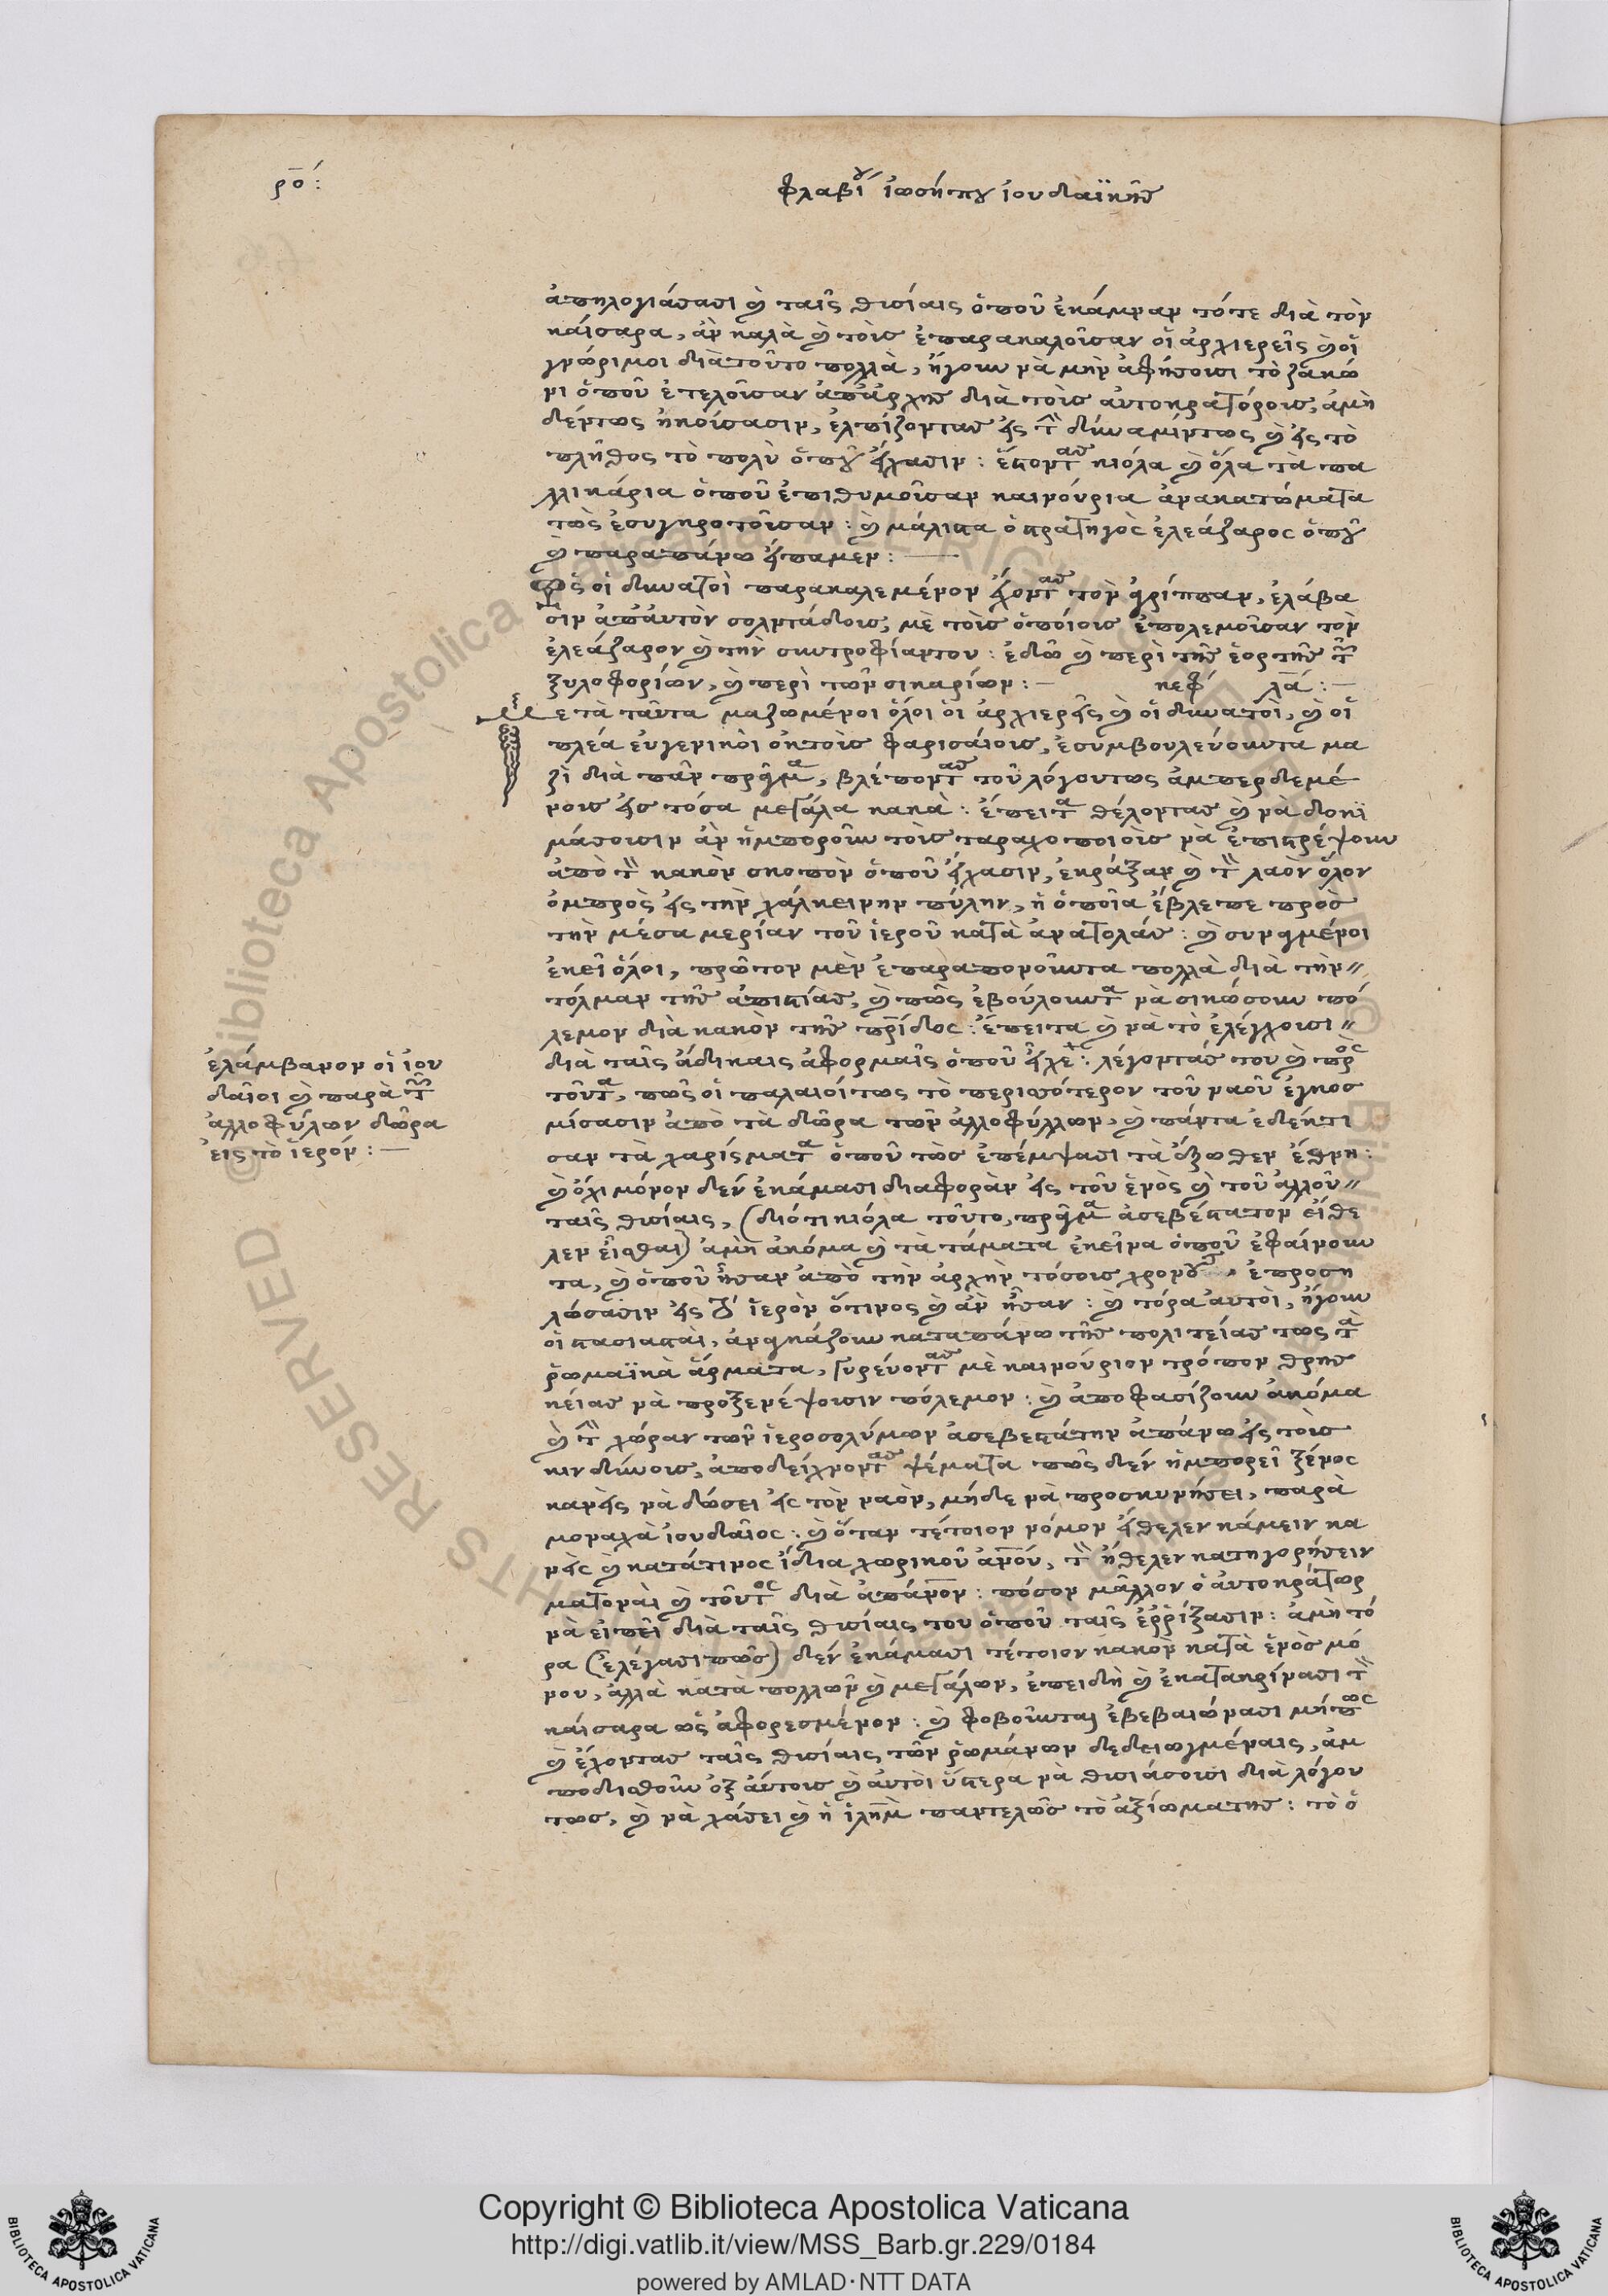 ρο΄:
φλαβίου ἰωσήπου ἰουδαϊκῆς
ἀπηλογιάσασι καὶ ταῖς θυσίαις ὁποῦ ἐκάμναν τότε διὰ τὸν
καίσαρα, ἂν καλὰ καὶ τοὺς ἐπαρακαλοῦσαν οἱ ἀρχιερεῖς καὶ οἱ
γνώριμοι διατοῦτο πολλὰ, ἤγουν νὰ μὴν ἀφήσουσι τὸ ζακώ
νι ὁποῦ ἐτελοῦσαν ἀπαρχῆς διὰ τοὺς αὐτοκρατόρους, ἀμὴ
δέντως ἠκούσασιν, ἐλπίζοντας εἰς τὴν δύναμίντως καὶ εἰς τὸ
πλῆθος τὸ πολὺ ὁποῦ εἴχασιν: ἔστοντας κιόλα καὶ ὅλα τὰ πα
λλικάρια ὁποῦ ἐπιθυμοῦσαν καινούρια ἀνακατώματα
τοὺς ἐσυγκροτοῦσαν: καὶ μάλιστα ὁ στρατηγὸς ἐλεάζαρος ὁποῦ
καὶ παραπάνω εἴπαμεν: —
Πῶς οἱ δυνατοὶ παρακαλεμένον ἔχοντας τὸν ἀγρίππαν, ἐλάβα
σιν ἀπαὐτὸν σολντάδους, μὲ τοὺς ὁποίους ἐπολεμοῦσαν τὸν
ἐλεάζαρον καὶ τὴν συντροφίαντου: ἐδῶ καὶ περὶ τῆς ἑορτῆς τῶν
ξυλοφορίων, καὶ περὶ τῶν σικαρίων: — κεφ λα: —
Μετὰ ταῦτα μαζωμένοι ὅλοι οἱ ἀρχιερεῖς καὶ οἱ δυνατοὶ, καὶ οἱ
πλέα εὐγενικοὶ ἐκτοὺς φαρισαίους, ἐσυμβουλεύουντα μα
ζὶ διὰ πᾶν πρᾶγμα, βλέποντας τοῦ λόγουτως ἀμπερδεμέ
νους εἰς τόσα μεγάλα κακὰ: ἔπειτα θέλοντας καὶ νὰ δοκι
μάσουσιν ἂν ἠμποροῦν τοὺς ταραχοποιοὺς νὰ ἐπιστρέψουν
ἀπὸ τὸν κακὸν σκοπὸν ὁποῦ εἴχασιν, ἐκράξαν καὶ τὸν λαὸν ὅλον
ὀμπρὸς εἰς τὴν χάλκεινην πύλην, ἡ ὁποῖα ἔβλεπε πρὸς
τὴν μέσα μερίαν τοῦ ἱεροῦ κατὰ ἀνατολάς: καὶ συναγμένοι
ἐκεῖ ὅλοι, πρῶτον μὲν ἐπαραπονοῦντα πολλὰ διὰ τὴν
τόλμαν τῆς ἀπιστίας, καὶ πῶς ἐβούλουντα νὰ σικώσουν πό
λεμον διὰ κακὸν τῆς πατρίδος: ἔπειτα καὶ νὰ τὸ ἐλέγχουσι
διὰ ταῖς ἄδικαις ἀφορμαῖς ὁποῦ εἶχε: λέγοντάς του καὶ πρὸς
τοῦτα, πῶς οἱ παλαιοίτως τὸ περισσότερον τοῦ ναοῦ ἐγκοσ
μίσασιν ἀπὸ τὰ δῶρα τῶν ἀλλοφύλλων, καὶ πάντα ἐδέκτι
σαν τὰ χαρίσματα ὁποῦ τοὺς ἐπέμψασι τὰ ἔξωθεν ἔθνη:
καὶ ὄχι μόνον δὲν ἐκάμασι διαφορὰν εἰς τοῦ ἑνὸς καὶ τοῦ ἀλλοῦ
ταῖς θυσίαις, (διότι κιόλα τοῦτο, πρᾶγμα ἀσεβέστατον εἴθε
λεν εἶσθαι) ἀμὴ ἀκόμα καὶ τὰ τάματα ἐκεῖνα ὁποῦ ἐφαίνουν
τα, καὶ ὁποῦ ἦσαν ἀπὸ τὴν ἀρχὴν τόσους χρόνους ἐπροση
λώσασιν εἰς τὸ ἱερὸν ὅτινος καὶ ἂν ἦσαν: καὶ τόρα αὐτοὶ, ἤγουν
οἱ στασιασταὶ, ἀναγκάζουν καταπάνω τῆς πολιτείας τως τὰ
ῥωμαϊκὰ ἄρματα, γυρεύοντας μὲ καινούριον τρόπον θρησ
κείας νὰ προξενέψουσιν πόλεμον: καὶ ἀποφασίζουν ἀκόμα
καὶ τὴν χώραν τῶν ἱεροσολύμων ἀσεβεστάτην ἀπάνω εἰς τοὺς
κινδύνους, ἀποδείχνοντας ψέματα πῶς δὲν ἠμπορεῖ ξένος
κανεὶς νὰ δώσει εἰς τὸν ναὸν, μήδε νὰ προσκυνήσει, παρὰ
μοναχὰ ἰουδαῖος: καὶ ὅταν τέτοιον νόμον εἴθελεν κάμειν κα
νεὶς καὶ κατάτινος ἴδια χωρικοῦ ἀνου, τὸν ἤθελεν κατηγορήσειν
ματοναὶ καὶ τοῦτος διὰ ἀπάνον: πόσον μᾶλλον ὁ αὐτοκράτωρ
νὰ εἰπεῖ διὰ ταῖς θυσίαις του ὁποῦ ταῖς ἐρρίξασιν: ἀμὴ τό
ρα (ἐλέγασι πῶς) δὲν ἐκάμασι τέτοιον κακὸν κατὰ ἑνὸς μό
νου, ἀλλὰ κατὰ πολλῶν καὶ μεγάλων, ἐπειδὴ καὶ ἐκατακρίνασι τὸν
καίσαρα ὡς ἀφορεσμένον: καὶ φοβοῦνται ἐβεβαιώνασι μήπως
καὶ ἔχοντας ταῖς θυσίαις τῶν ῥωμάνων δεδειωγμέναις, ἀμ
ποδισθοῦν ἐξ αὐτους καὶ αὐτοὶ ὕστερα νὰ θυσιάσουσι διὰ λόγου
τως, καὶ νὰ χάσει καὶ ἡ ἱλημ παντελῶς τὸ ἀξίωματης: τὸ ὁ
ἐλάμβανον οἱ ἰου
δαῖοι καὶ παρὰ τῶν
ἀλλοφύλων δῶρα
εἰς τὸ ἱερόν: —
Copyright © Biblioteca Apostolica Vaticana
http://digi.vatlib.it/view/MSS_Barb.gr.229/0184
powered by AMLAD·NTT DATA
BIBLIOTECA APOSTOLICA VATICANA
BIBLIOTECA APOSTOLICA VATICANA